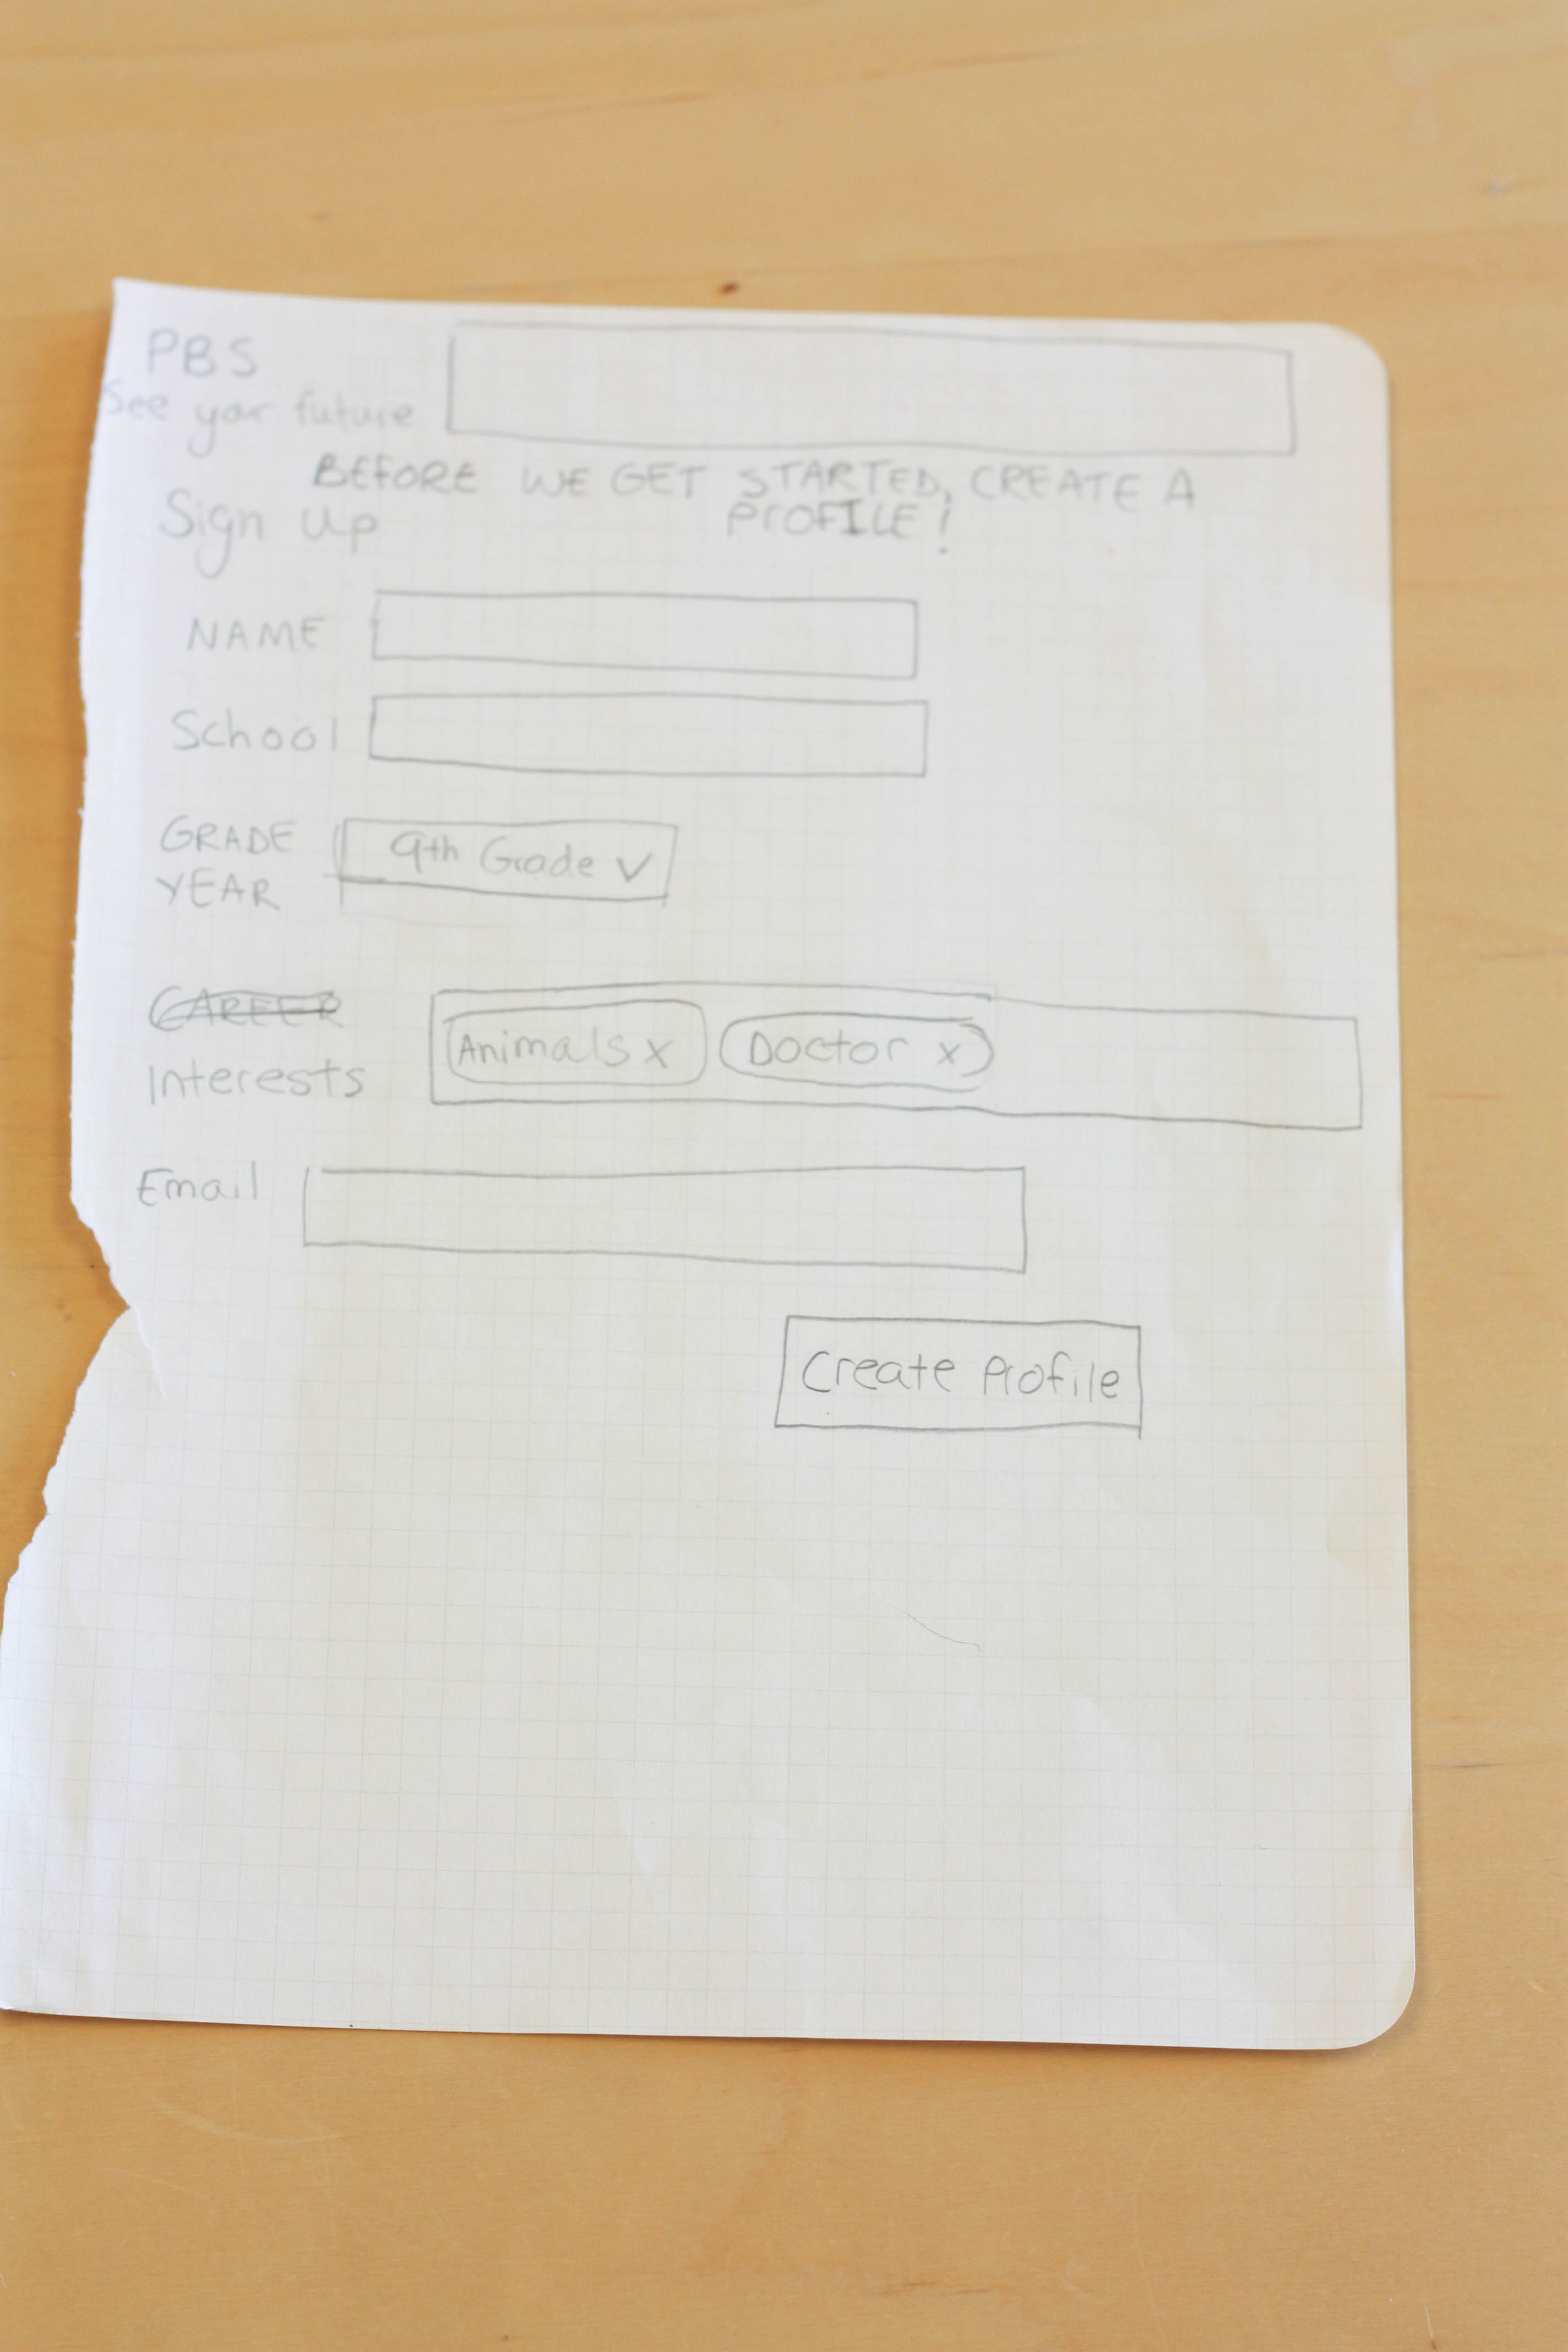 PBS
See your future
BEFORE WE GET STARTED, CREATE A
PROFILE!
Sign Up
NAME
School
GRADE
YEAR
9th Grade
CAREER
Interests
Animals x
Doctor x
Email
Create Profile